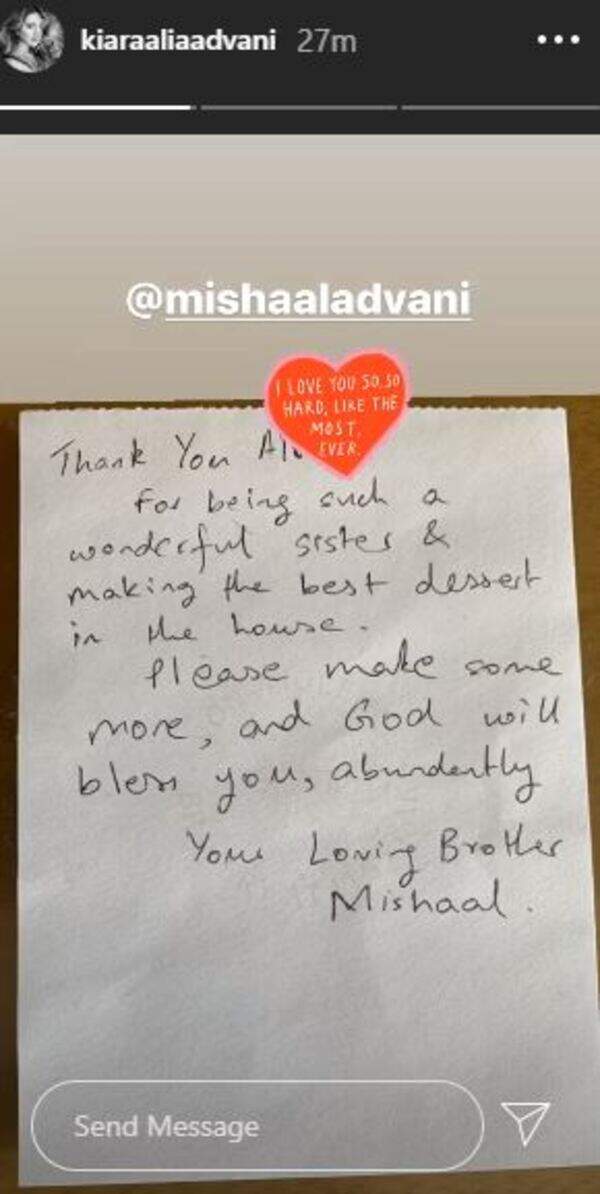 kiaraaliaadvani 27m
@mishaaladvani
I LOVE YOU SO SO
HARD, LIKE THE
MOST,
EVER.
Thank You
For being such a
wonderful sister &
making the best dessert
in the house.
Please make some
more, and God will
bless you, abundently
Your Loving Brother
Mishaal.
Send Message